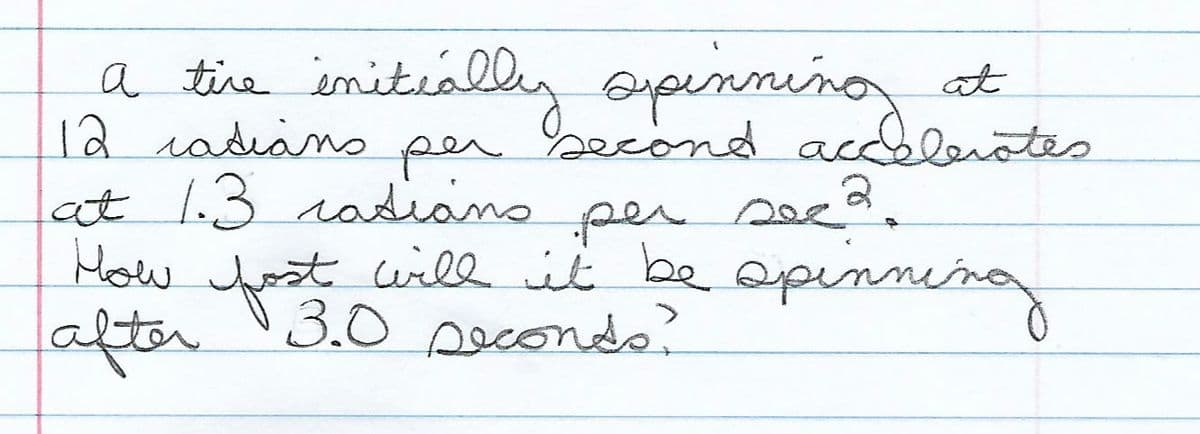 a tire initially spinning at
12 radians per second accelerates
at 1.3 radians per sec².
How fast will it be spinning
after 3.0 seconds?